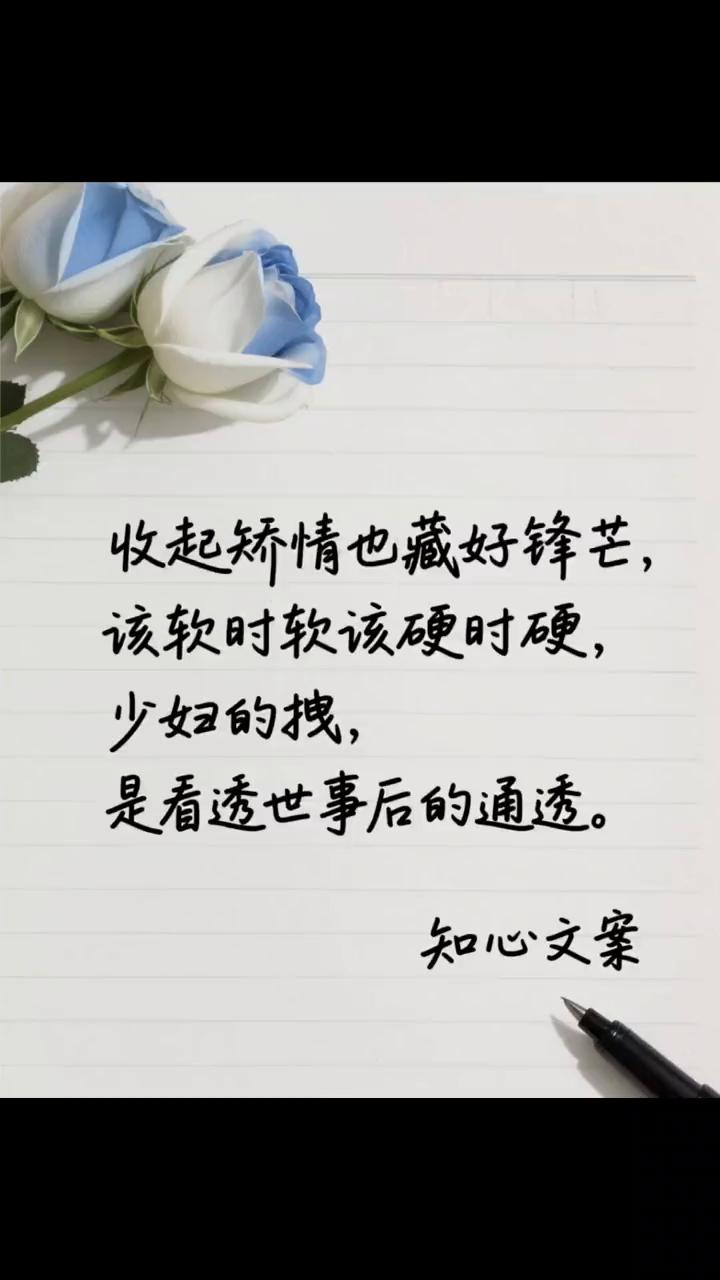 收起矫情也藏好锋芒，
该软时软该硬时硬，
少妇的拽，
是看透世事后的通透。
知心文案